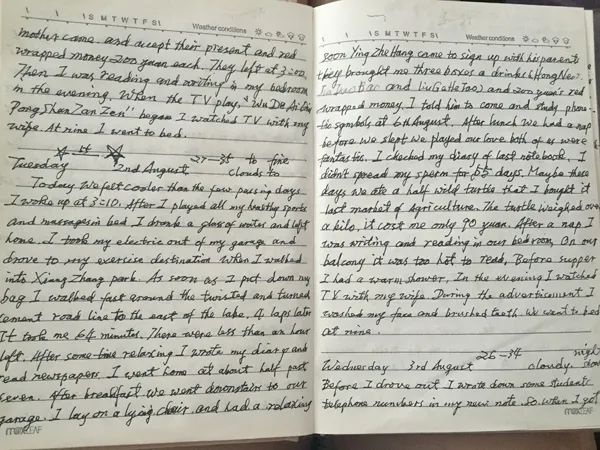 S M T W T F S Weather conditions
mother came and accept their present and red
wrapped money 200 yuan each. They left at 3=00.
Then I was reading and writing in my bedroom
in the evening. When the TV play, "Wo De Ai
PongShanZanZen" began I watched TV with my
wife. At nine I went to bed.
27—35 to fine
Tuesday 2nd August clouds to
Today we felt cooler than the few passing days
I woke up at 3=10. After I played all my healthy sports
and massages in bed I drank a glass of water and left
home. I took my electric out of my garage and
drove to my exercise destination when I walked
into Xiang Zhang park. As soon as I put down my
bag I walked fast around the twisted and turned
cement road line to the east of the lake. 4 laps later
It took me 64 minutes. There were less than an hour
left. After some time relaxing I wrote my diary and
read newspapers. I went home at about half past
seven. After breakfast we went downstairs to our
garage. I lay on a lying chair and had a relaxing
LEAF
S M T W T F S Weather conditions
soon Ying ZheHang came to sign up with his parents
they brought me three boxes a drinks (HongNiu?
and LiuGeHeTao) and 200 yuan's red
wrapped money. I told him to come and study phone-
tic symbols at 6th August. After lunch we had a nap
before we slept we played our love both of us were
fantastic. I checked my diary of last notebook, I
didn't spread my sperm for 65 days. Maybe these
days we ate a half wild turtle that I bought it
last market of Agriculture. The turtle weighed over
a kilo, it cost me only 90 yuan. After a nap I
was writing and reading in our bedroom. On our
balcony it was too hot to read. Before supper
I had a warm shower. In the evening I watched
TV with my wife. During the advertisement I
washed my face and brushed teeth. We went to bed
at nine.
26—34
Wednesday 3rd August cloudy.
Before I drove out I wrote down some students
telephone numbers in my new note. So when I got
LEAF